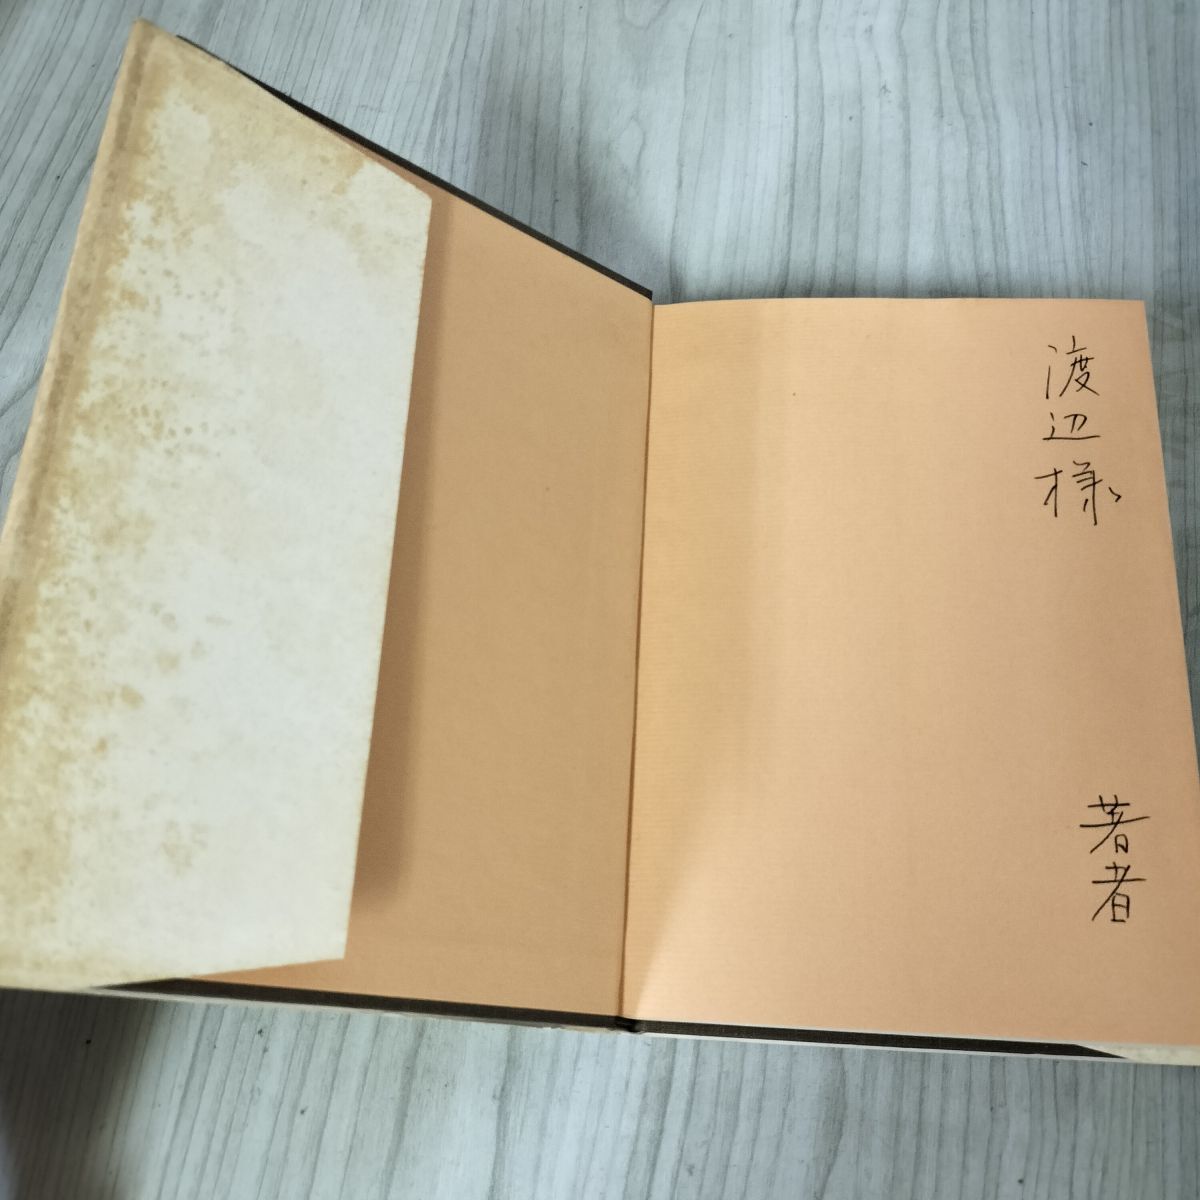 渡辺様
著者